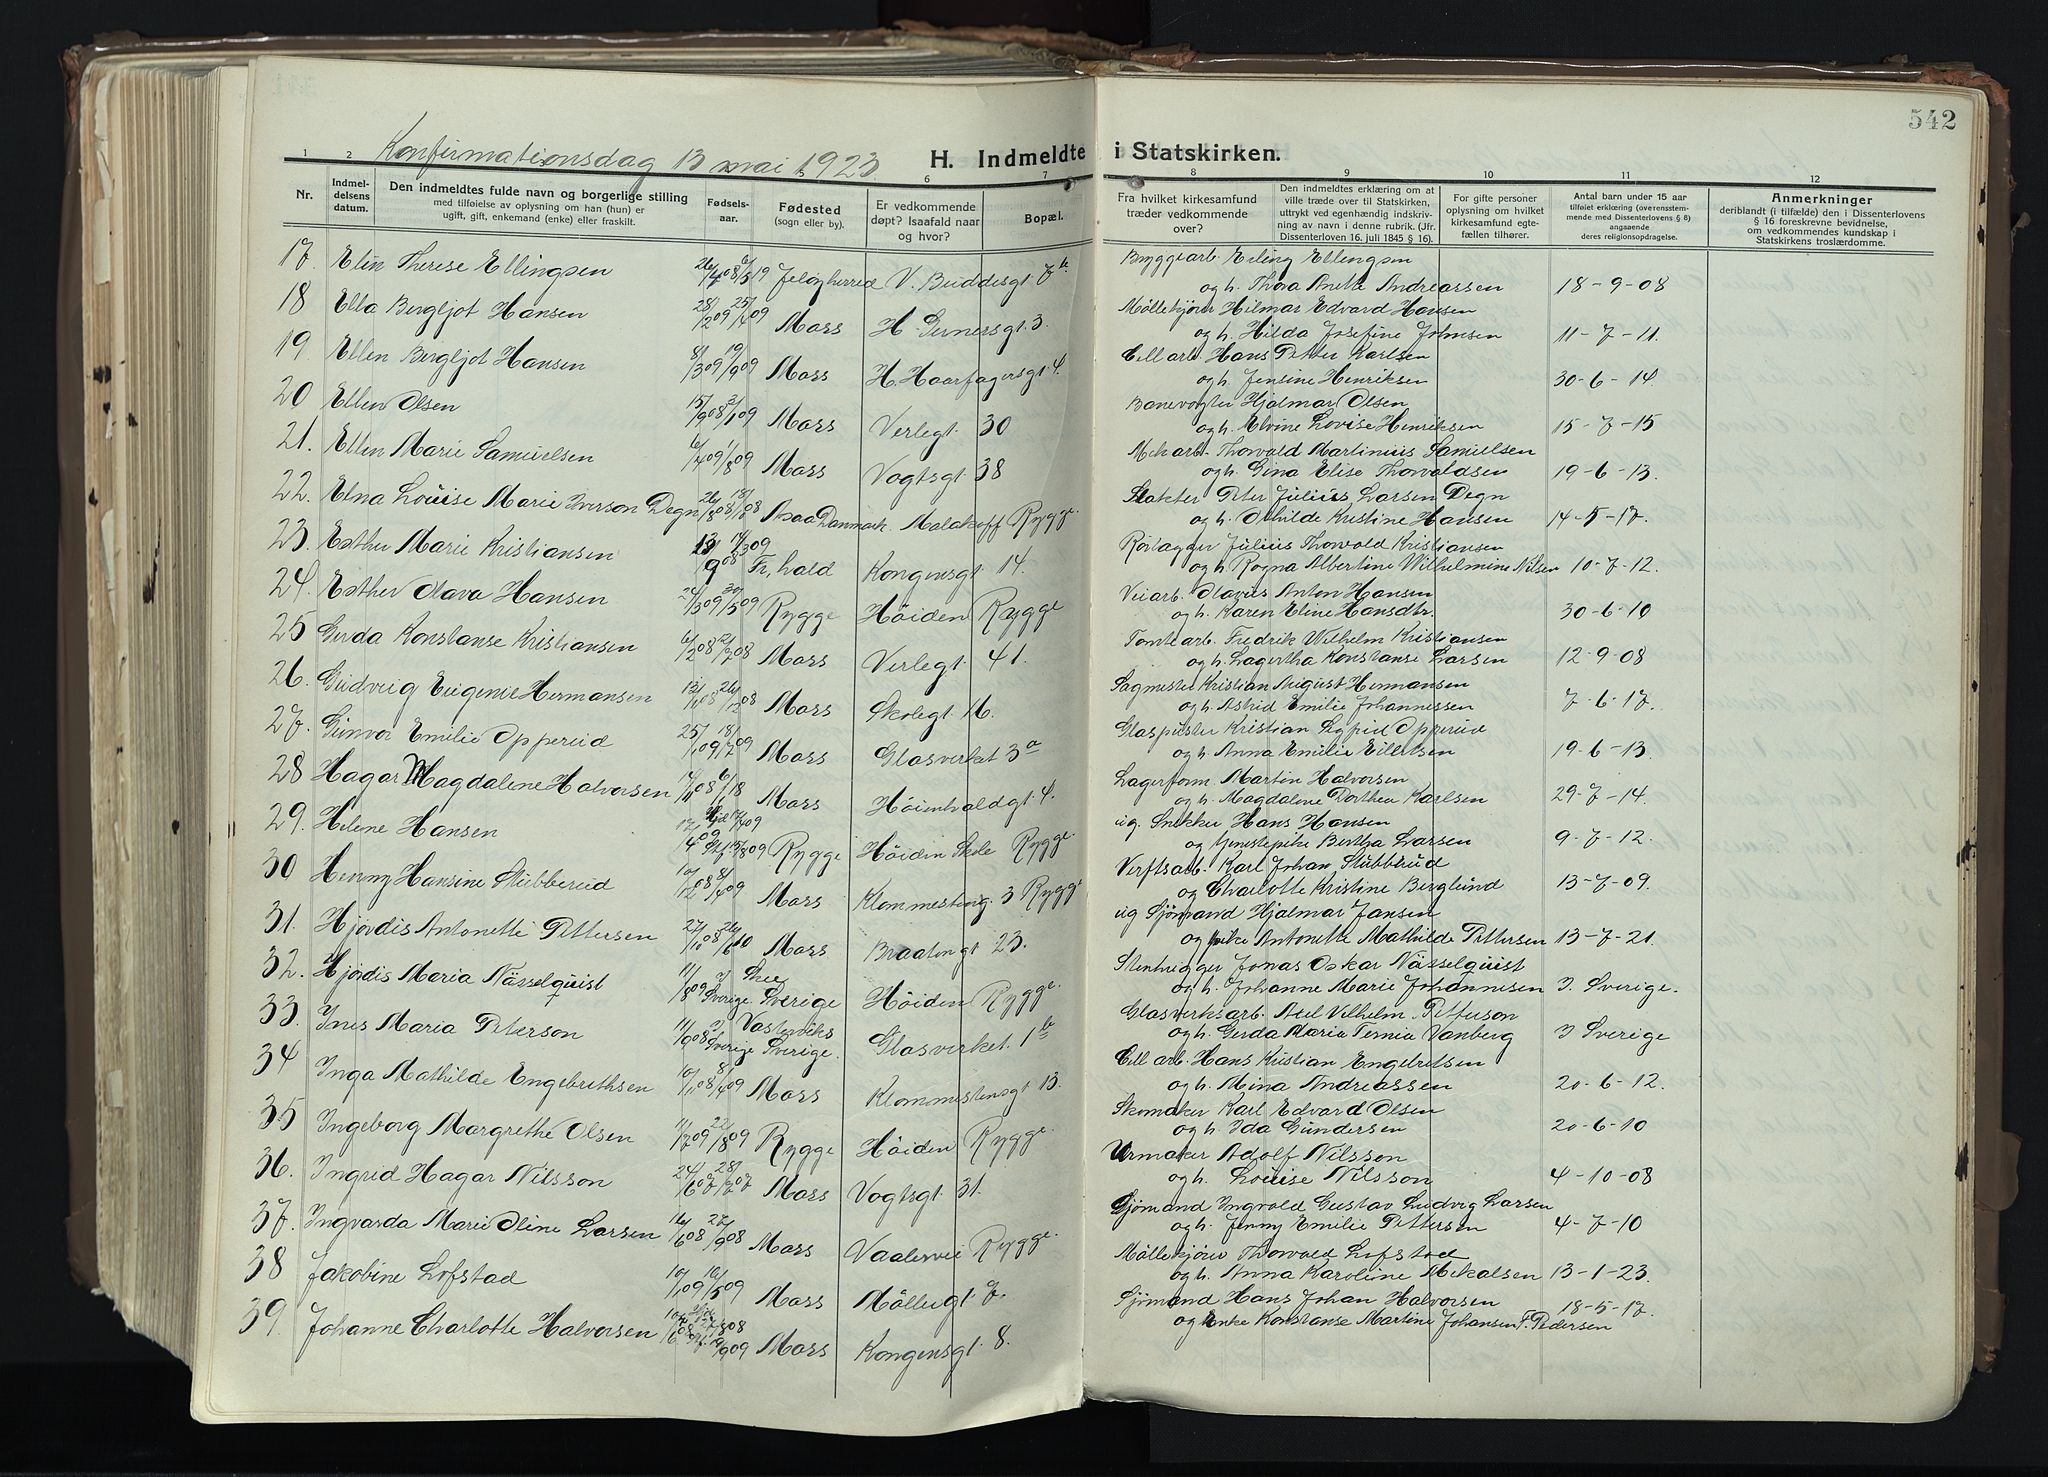 542
Konfirmationsdag 13 mai 1923.
H. Indmeldte i Statskirken.
1 2 5 6 7 8 9 10 11 12
Nr.
Indmel-
delsens
datum.
Den indmeldtes fulde navn og borgerlige stilling
med tilføielse av oplysning om han (hun) er
ugift, gift, enkemand (enke) eller fraskilt.
Fødsels-
aar.
Fødested
(sogn eller by).
Er vedkommende
døpt? Isaafald naar
og hvor?
Bopæl.
Fra hvilket kirkesamfund
træder vedkommende
over?
Den indmeldtes erklæring om at
ville træde over til Statskirken,
uttrykt ved egenhændig indskriv-
ing av navn i denne rubrik. (Jfr.
Dissenterloven 16. juli 1845 § 16).
For gifte personer
oplysning om hvilket
kirkesamfund egte-
fællen tilhører.
Antal barn under 15 aar
tilføiet erklæring (overensstem-
mende med Dissenterlovens § 8)
angaaende
deres religionsopdragelse.
Anmerkninger
deriblandt (i tilfælde) den i Dissenterlovens
§ 16 foreskrevne bevidnelse,
om vedkommendes kundskap i
Statskirkens troslærdomme.
17. Elin Therese Ellingsen 26/4 08 6/5 19 Jeløyherred V. Buddesgt 7b Bryggearb. Erling Ellingsen
og h. Thora Anette Andreassen 18-9-08
18 Ella Bergljot Hansen 28/2 09 25/4 09 Moss H. Gernersgt. 3. Møllekjører Hilmar Edvard Hansen
og h. Hilda Josefine Johnsen 11-7-11.
19. Ellen Bergljot Hansen 8/3 09 19/9 09 Moss H. Haarfagersgt. 4. Cell arb. Hans Petter Karlsen
og h. Jensine Henriksen 30-6-14.
20 Ellen Olsen 15/9 08 3/1 09 Moss Verlegt. 30 Banevogter Hjalmar Olsen
og h. Elvine Lovise Henriksen 15-7-15
21. Ellen Marie Samuelsen 6/4 09 1/8 09 Moss Vogtsgt 38 Mek arb. Thorvald Martinius Samuelsen
og h. Gina Elise Thorvaldsen 19-6-13.
22. Elna Louise Marie Iverson Degn Asaa Danmark. Malakoff Rygge. Slakter Peter Julius Larsen Degn
og h. Othilde Kristine Hansen 14-5-17.
23. Esther Marie Kristiansen Fr. hald Kongensgt. 14. Rørlægger Julius Thorvald Kristiansen
og h. Ragna Albertine Wilhelmine Nilsen 10-7-12.
24. Esther Olava Hansen 24/3 09 30/5 09 Rygge Høiden Rygge Veiarb. Olavus Anton Hansen
og h. Karen Eline Hansdtr. 30-6-10
25 Gerda Konstanse Kristiansen 6/2 08 2/7 08 Moss Verlegt. 41. Tomtearb. Fredrik Wilhelm Kristiansen
og h. Lagertha Konstanse Larsen 12-9-08
26. Gudveig Eugenie Hermansen Moss Skolegt. 16. Sagmester Kristian August Hermansen
og h. Astrid Emilie Johannessen 7-6-17.
27. Gunvor Emilie Opperud 25/1 09 18/7 09 Moss Glasverket 3a Glaspuster Kristian Opperud
og h. Anna Emilie Eilertsen 19-6-13.
28 Hagar Magdalene Halvorsen Moss Høienhaldgt. 4. Lagerform. Martin Halvorsen
og h. Magdalene Dorthea Karlsen 29-7-14.
29. Helene Hansen Rygge Høiden Skole Rygge. ug. Snekker Hans Hansen
og tjenestepike Bertha Larsen 9-7-12.
30 Henny Hansine Stubberud 10/12 08 8/4 09 Moss Klommesteng. 3 Rygge Verftsarb. Karl Johan Stubberud
og Charlotte Kristine Berglund 13-7-09.
31. Hjørdis Antonette Pettersen 27/10 08 26/6 10 Moss Braatengt 23. ug Sjømand Hjalmar Jansen
og pike Antonette Mathilde Pettersen 13-7-21.
32. Hjørdis Maria Nässelquist 11/8 09 i Sverige Skee Sverige Høiden Rygge. Stenhugger Jonas Oskar Nässelquist
og h. Johanne Marie Johannesen I. Sverige.
33. Ines Maria Peterson 11/9 08 i Sverige Vasterviks Sverige. Glasverket. 1b Glasverksarb. Axel Vilhelm Petterson
og h. Gerda Maria Vanberg I Sverige
34 Inga Mathilde Engebrethsen 10/10 08 8/4 09 Moss Klommestensgt 13. Cell arb. Hans Kristian Engebretsen
og h. Mina Andreassen 20-6-12.
35 Ingeborg Margrethe Olsen 11/2 09 22/8 09 Rygge Høiden Rygge. Skomaker Karl Edvard Olsen
og h. Ida Gundersen 20-6-10
36. Ingrid Hagar Nilsson 24/6 07 28/7 07 Moss Vogtsgt. 31. Urmaker Adolf Nilsson
og h. Louise Nilsson 4-10-08
37. Ingvarda Marie Oline Larsen 16/6 08 27/9 08 Moss Vaalervei Rygge. Sjømand Ingvald Gustav Ludvig Larsen
og h. Jenny Emilie Pettersen 4-7-10
38 Jakobine Lofstad 10/1 09 16/5 09 Moss Møllegt 7. Møllekjører Thorvald Lofstad
og h. Anna Karoline Mikalsen 13-1-23.
39. Johanne Charlotte Halvorsen Moss Kongensgt. 8. Sjømand Hans Johan Halvorsen 18-5-17.
og enke Konstanse Martine Johansen F. Pedersen